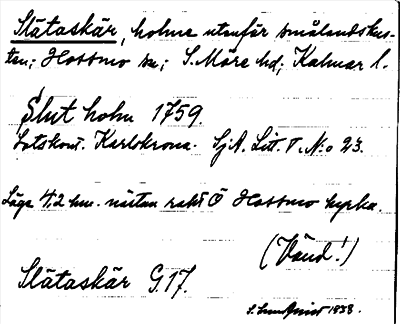 Slätaskär, holme utanför smålandskus-
ten; Hossmo sn; S. Möre hd; Kalmar l.
Slut holm 1759.
Lotskont. Karlskrona. SjA. Litt. T. N:o 23.
Läge 4,2 km. nästan rakt Ö Hossmo kyrka.
(Vänd!)
Slätaskär G 17.
S. Lundquist 1938.